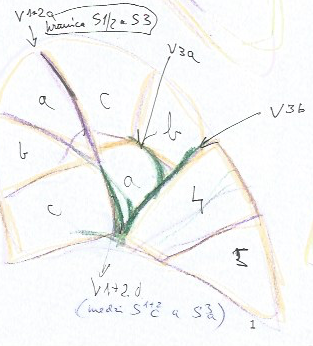 V1+2a
hranica S1/2 a S3
V3a
V3b
a
c
b
b
a
4
c
5
V1+2d
(medzi S1+2c a S3a)
1